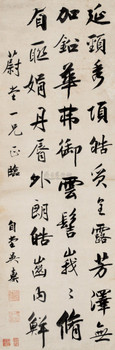 延頸秀項皓質呈露芳澤無
加鉛華弗御雲髻峩〻脩
眉聯娟丹脣外朗皓齒內鮮
一兄正